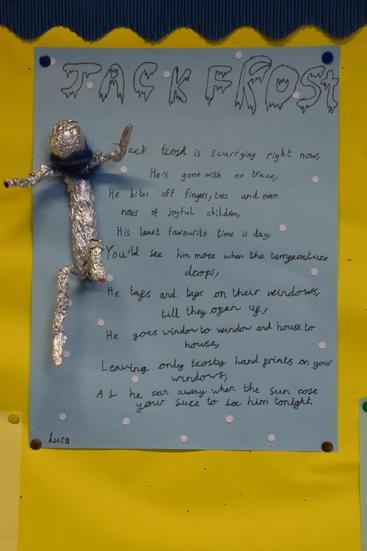 JACK FROST
Jack frost is scurrying right now,
He's gone with no trace,
He bites off fingers, toes and even
noses of joyful children,
His least favourite time is day,
You'ld see him more when the temperature
drops,
He taps and taps on their weindows,
till they open up,
He goes window to weindow and house to
house,
Leaving only frosty hand prints on your
windows,
As he ran away when the sun rose
your sure to see him tonight.
Luca